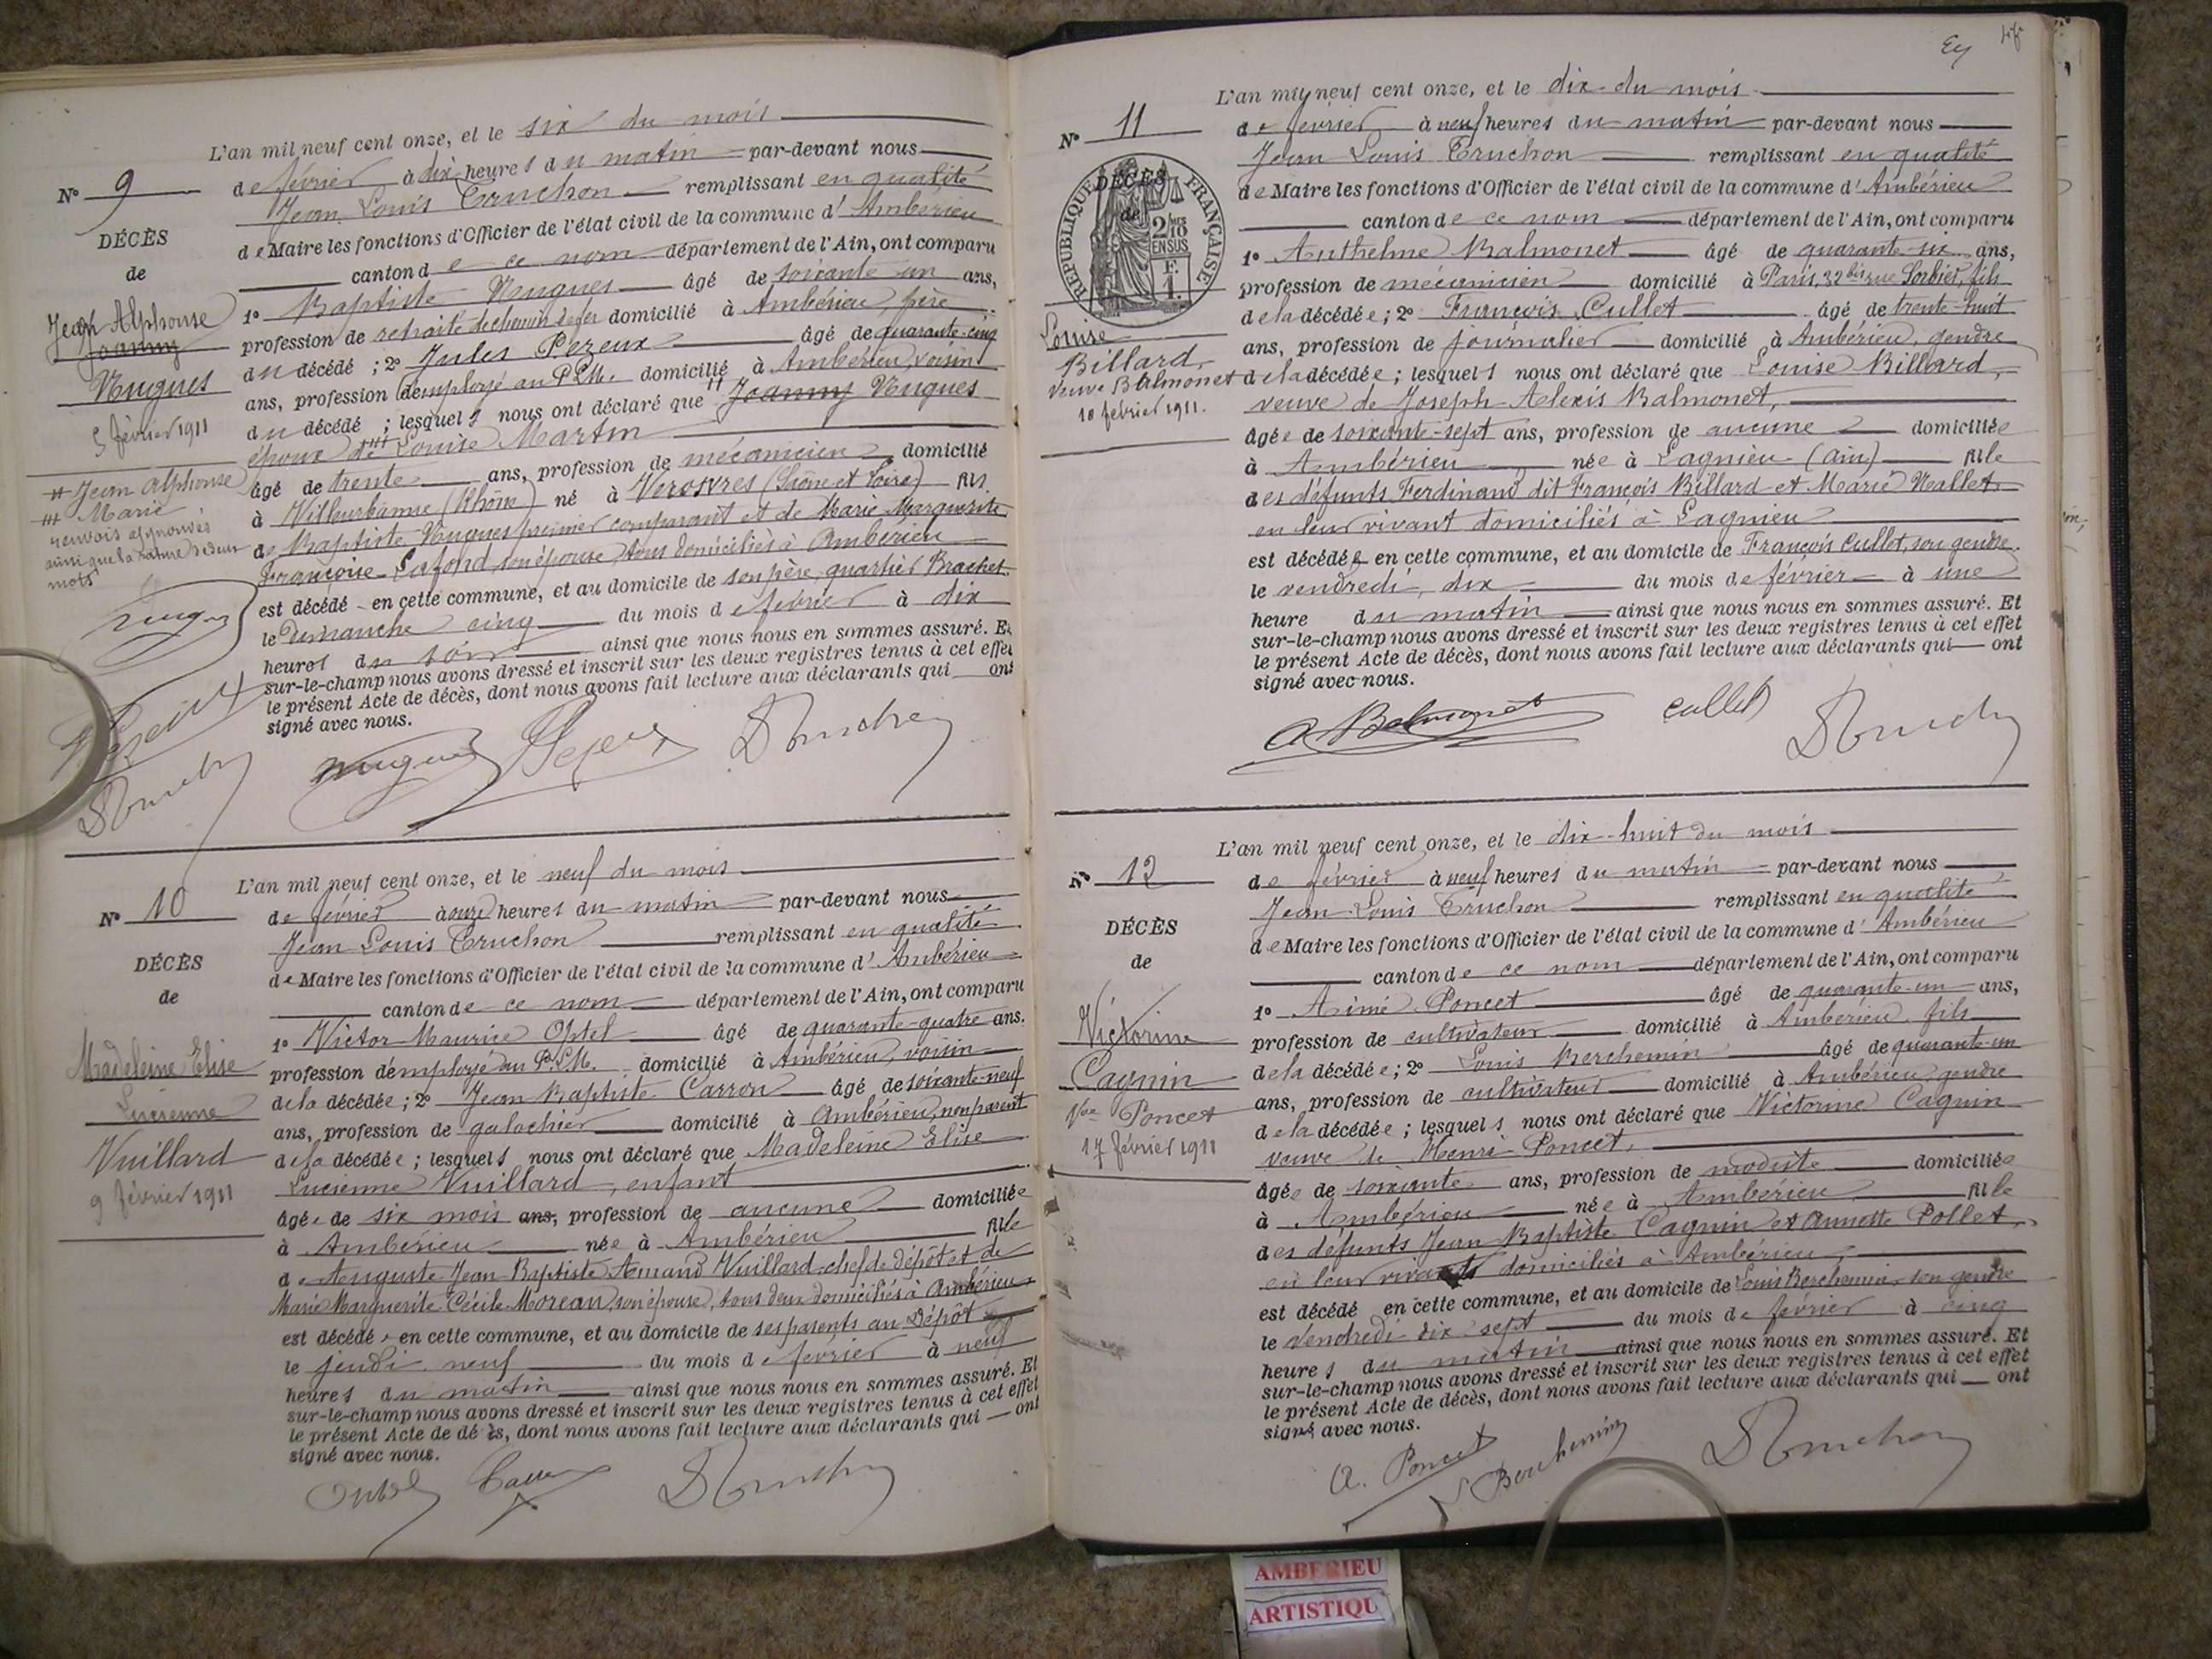 L'an mil neuf cent onze, et le six du mois
de février à dix heures du matin par-devant nous
Jean Louis Truchon remplissant en qualité
de Maire les fonctions d'Officier de l'état civil de la commune d'Ambérieu
canton de ce nom département de l'Ain, ont comparu
1° Baptiste Nugues âgé de soixante un ans,
profession de retraité de chemin de fer domicilié à Ambérieu, père
du décédé ; 2° Jules Pezeux âgé de quarante-cinq
ans, profession d'employé au P.L.M. domicilié à Ambérieu, voisin
du décédé ; lesquels nous ont déclaré que # Joanny Nugues
époux de ## Louise Martin
âgé de trente ans, profession de mécanicien domicilié
à Villeurbanne (Rhône) né à Verosvres (Saône et Loire) fils
de Baptiste Nugues premier comparant et de Marie Marguerite
Françoise Lafond, son épouse, tous domiciliés à Ambérieu
est décédé en cette commune, et au domicile de son père, quartier Brachet
le dimanche cinq du mois de février à dix
heures du soir ainsi que nous nous en sommes assuré. Et
sur-le-champ nous avons dressé et inscrit sur les deux registres tenus à cet effet
le présent Acte de décès, dont nous avons fait lecture aux déclarants qui ont
signé avec nous.
N° 9
DÉCÈS
de
Jean Alphonse
Joanny
Nugues
5 février 1911
# Jean Alphonse
## Marie
renvois approuvés
ainsi que la rature de deux
mots
Nugues
Pezeux
Truchon
Nugues Pezeux Truchon
L'an mil neuf cent onze, et le neuf du mois
de février à onze heures du matin par-devant nous
Jean Louis Truchon remplissant en qualité
de Maire les fonctions d'Officier de l'état civil de la commune d'Ambérieu
canton de ce nom département de l'Ain, ont comparu
1° Victor Maurice Optel âgé de quarante-quatre ans.
profession d'employé au P.L.M. domicilié à Ambérieu, voisin
de la décédée ; 2° Jean Baptiste Carron âgé de soixante-neuf
ans, profession de galochier domicilié à Ambérieu, non parent
de la décédée ; lesquels nous ont déclaré que Madeleine Elise
Lucienne Vuillard, enfant
âgée de six mois ans, profession de aucune domiciliée
à Ambérieu née à Ambérieu fille
de Auguste Jean Baptiste Amand Vuillard chef de dépôt et de
Marie Marguerite Cécile Moreau, son épouse, tous deux domiciliés à Ambérieu
est décédée en cette commune, et au domicile de ses parents au Dépôt
le jeudi neuf du mois de février à neuf
heures du matin ainsi que nous nous en sommes assuré. Et
sur-le-champ nous avons dressé et inscrit sur les deux registres tenus à cet effet
le présent Acte de décès, dont nous avons fait lecture aux déclarants qui ont
signé avec nous.
N° 10
DÉCÈS
de
Madeleine Elise
Lucienne
Vuillard
9 février 1911
Optel Carron Truchon
L'an mil neuf cent onze, et le dix du mois
de février à neuf heures du matin par-devant nous
Jean Louis Truchon remplissant en qualité
de Maire les fonctions d'Officier de l'état civil de la commune d'Ambérieu
canton de ce nom département de l'Ain, ont comparu
1° Anthelme Balmonet âgé de quarante-six ans,
profession de mécanicien domicilié à Paris, 32 bis rue Sorbier, fils
de la décédée ; 2° François Cullet âgé de trente-huit
ans, profession de journalier domicilié à Ambérieu, gendre
de la décédée ; lesquels nous ont déclaré que Louise Billard,
veuve de Joseph Alexis Balmonet,
âgée de soixante-sept ans, profession de aucune domiciliée
à Ambérieu née à Lagnieu (Ain) fille
des défunts Ferdinand dit François Billard et Marie Mallet
en leur vivant domiciliés à Lagnieu
est décédée en cette commune, et au domicile de François Cullet, son gendre
le vendredi dix du mois de février à une
heure du matin ainsi que nous nous en sommes assuré. Et
sur-le-champ nous avons dressé et inscrit sur les deux registres tenus à cet effet
le présent Acte de décès, dont nous avons fait lecture aux déclarants qui ont
signé avec nous.
N° 11
DÉCÈS
de
RÉPUBLIQUE FRANÇAISE
2/10
EN SUS
Louise
Billard
veuve Balmonet
10 février 1911.
A Balmonet Cullet Truchon
L'an mil neuf cent onze, et le dix-huit du mois
de février à neuf heures du matin par-devant nous
Jean Louis Truchon remplissant en qualité
de Maire les fonctions d'Officier de l'état civil de la commune d'Ambérieu
canton de ce nom département de l'Ain, ont comparu
1° Aimé Poncet âgé de quarante-un ans,
profession de cultivateur domicilié à Ambérieu fils
de la décédée ; 2° Louis Berchemin âgé de quarante-un
ans, profession de cultivateur domicilié à Ambérieu, gendre
de la décédée ; lesquels nous ont déclaré que Victorine Cagnin
veuve de Henri Poncet,
âgée de soixante ans, profession de modiste domiciliée
à Ambérieu née à Ambérieu fille
des défunts Jean Baptiste Cagnin et Annette Pollet
en leur vivants domiciliés à Ambérieu
est décédé en cette commune, et au domicile de Louis Berchemin son gendre
le vendredi dix-sept du mois de février à cinq
heures du matin ainsi que nous nous en sommes assuré. Et
sur-le-champ nous avons dressé et inscrit sur les deux registres tenus à cet effet
le présent Acte de décès, dont nous avons fait lecture aux déclarants qui ont
signé avec nous.
N° 12
DÉCÈS
de
Victorine
Cagnin
Vve Poncet
17 février 1911
A. Poncet L Berchemin Truchon
AMBERIEU
ARTISTIQU